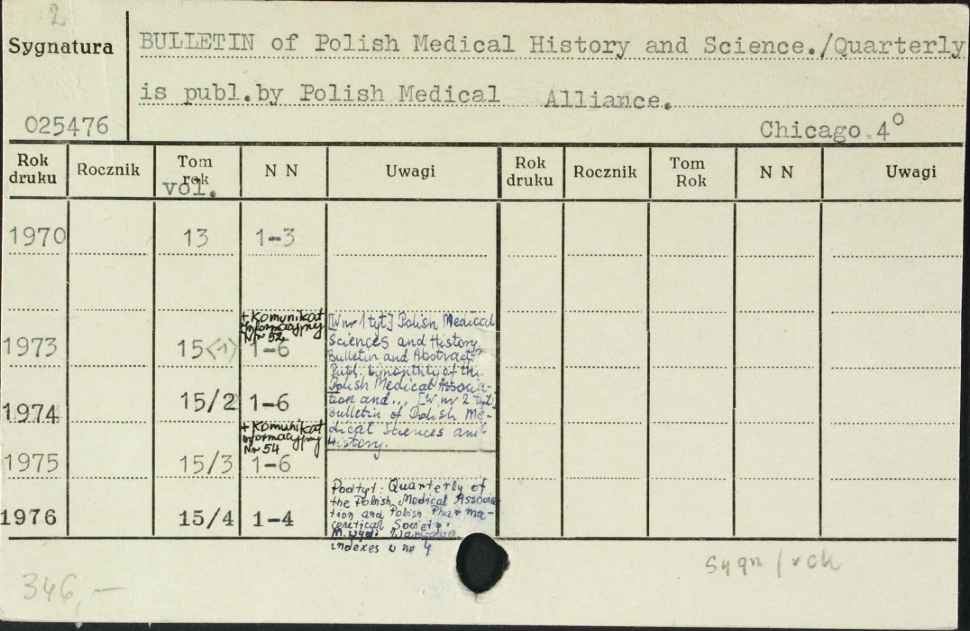 2
Sygnatura
BULLETIN of Polish Medical History and Science./Quarterly
is publ.by Polish Medical Alliance.
025476
Chicago 4°
Rok druku Rocznik Tom rok vol. N N Uwagi Rok druku Rocznik Tom Rok N N Uwagi
1970 13 1-3
+ Komunikat
Informacyjny
Nr 52
1973 15<1> 1-6
[W nr 1 tyt.] Polish Medical
Sciences and History
Bulletin and Abstracts
Publ. bimonthly of the
Polish Medical Associa-
tion and... [W nr 2 tyt]
bulletin of Polish Me-
dical Sciences and
History.
1974 15/2 1-6
+ Komunikat
Informacyjny
Nr 54
1975 15/3 1-6
Podtyt: Quarterly of
the Polish Medical Associa
tion and Polish Pharma-
ceutical Society.
M. wyd.
indexes w no 4
1976 15/4 1-4
346,-
Sygn